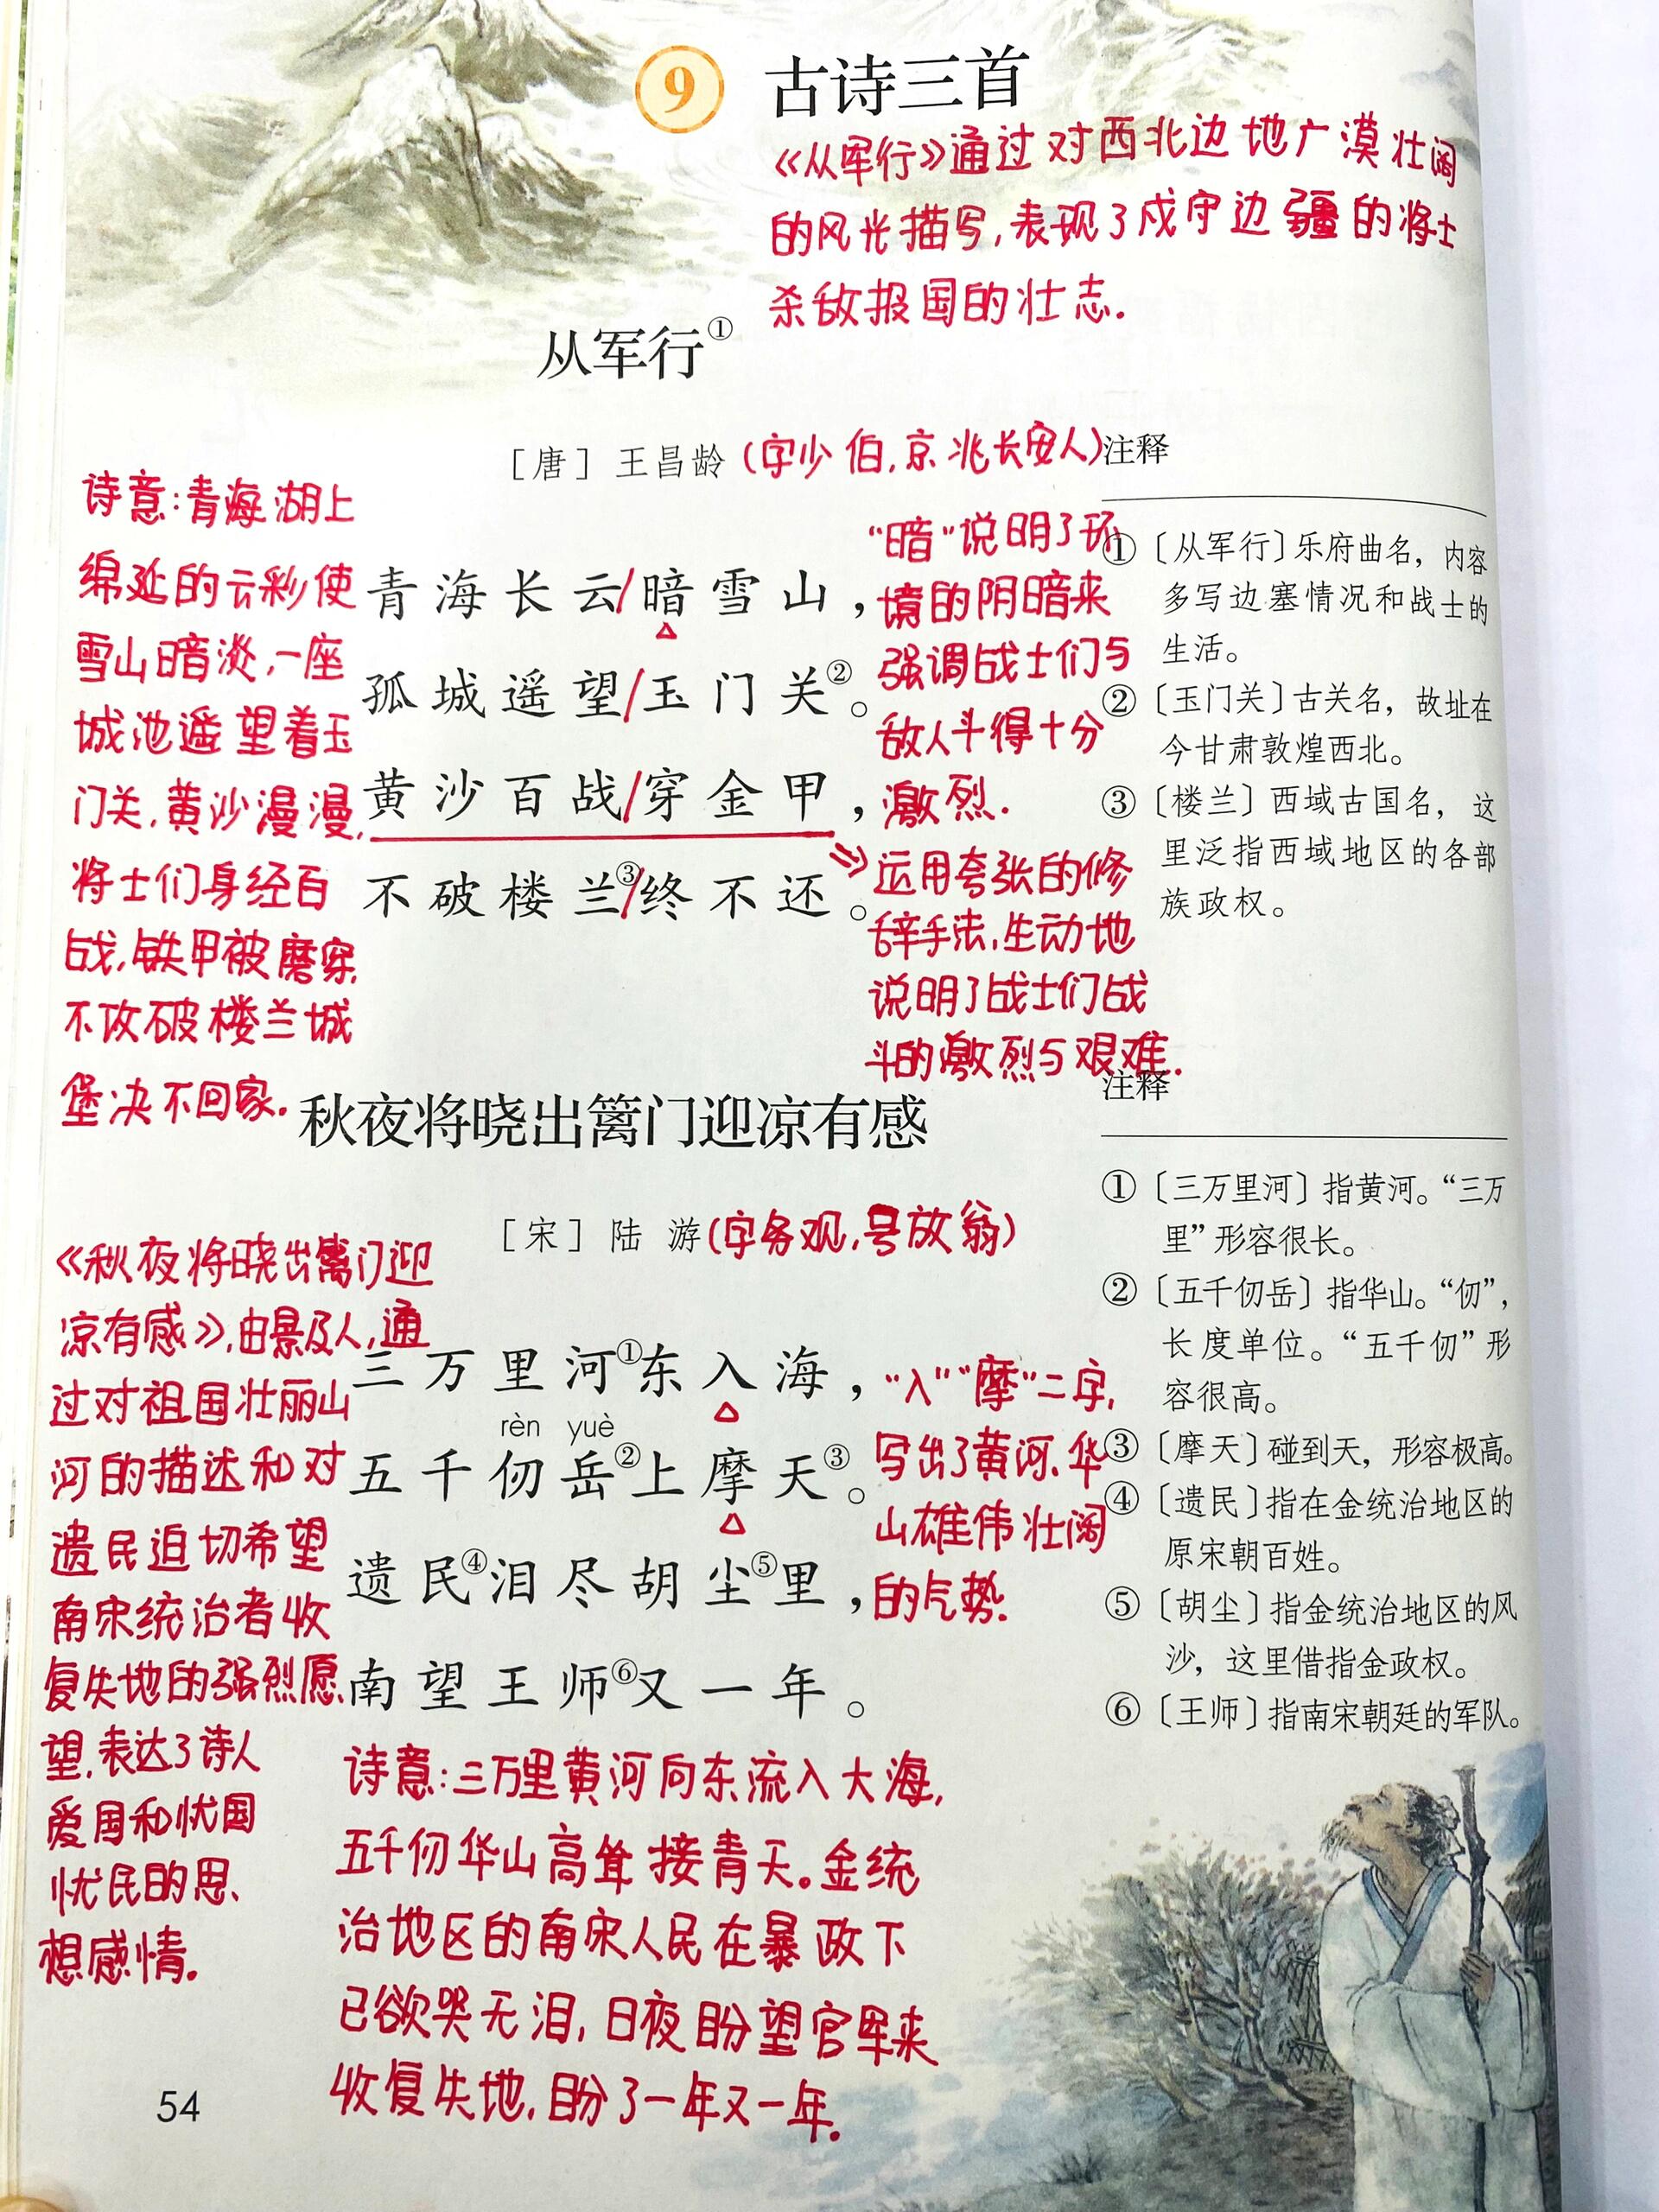 9 古诗三首
《从军行》通过对西北边地广漠壮阔
的风光描写,表现了戍守边疆的将士
杀敌报国的壮志.
从军行①
[唐] 王昌龄(字少伯,京兆长安人)
诗意:青海湖上
绵延的云彩使
雪山暗淡,一座
城池遥望着玉
门关,黄沙漫漫,
将士们身经百
战,铁甲被磨穿,
不攻破楼兰城
堡决不回家.
青海长云/暗雪山,
孤城遥望/玉门关②。
黄沙百战/穿金甲,
不破楼兰③/终不还。
“暗”说明了环
境的阴暗来
强调战士们与
敌人斗得十分
激烈.
运用夸张的修
辞手法,生动地
说明了战士们战
斗的激烈与艰难.
注释
①〔从军行〕乐府曲名，内容
多写边塞情况和战士的
生活。
②〔玉门关〕古关名，故址在
今甘肃敦煌西北。
③〔楼兰〕西域古国名，这
里泛指西域地区的各部
族政权。
秋夜将晓出篱门迎凉有感
[宋] 陆 游(字务观,号放翁)
《秋夜将晓出篱门迎
凉有感》,由景及人,通
过对祖国壮丽山
河的描述和对
遗民迫切希望
南宋统治者收
复失地的强烈愿
望,表达了诗人
爱国和忧国
忧民的思、
想感情。
三万里河①东入海，
rèn yuè
五千仞岳②上摩天③。
遗民④泪尽胡尘⑤里，
南望王师⑥又一年。
“入”“摩”二字,
写出了黄河、华
山雄伟壮阔
的气势.
注释
①〔三万里河〕指黄河。“三万
里”形容很长。
②〔五千仞岳〕指华山。“仞”，
长度单位。“五千仞”形
容很高。
③〔摩天〕碰到天，形容极高。
④〔遗民〕指在金统治地区的
原宋朝百姓。
⑤〔胡尘〕指金统治地区的风
沙，这里借指金政权。
⑥〔王师〕指南宋朝廷的军队。
诗意:三万里黄河向东流入大海,
五千仞华山高耸接青天。金统
治地区的南宋人民在暴政下
已欲哭无泪,日夜盼望官军来
收复失地,盼了一年又一年.
54